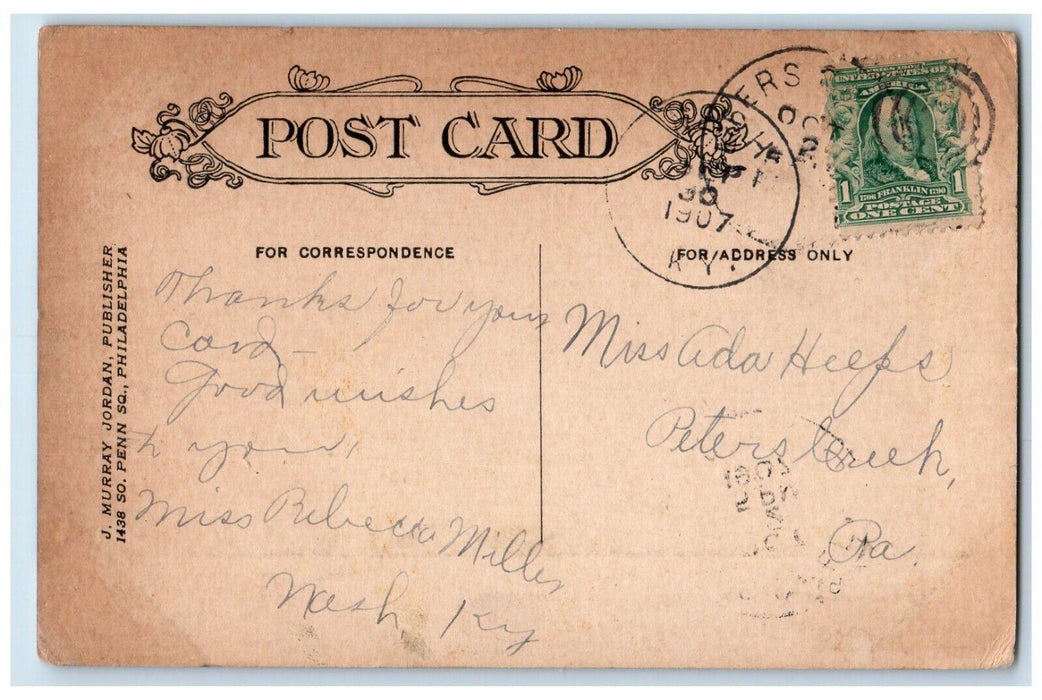 POST CARD
UNITED STATES OF
AMERICA
1 1706 FRANKLIN 1790 1
POSTAGE
ONE CENT
ERS
OCT
2
30
1907
KY.
FOR CORRESPONDENCE
FOR ADDRESS ONLY
J. MURRAY JORDAN, PUBLISHER
1438 SO. PENN SQ., PHILADELPHIA
Thanks for your
Card —
Good wishes
to you,
Miss Rebecca Miller
Nash, Ky
Miss Ada Heefs
Peters Creek,
Pa.